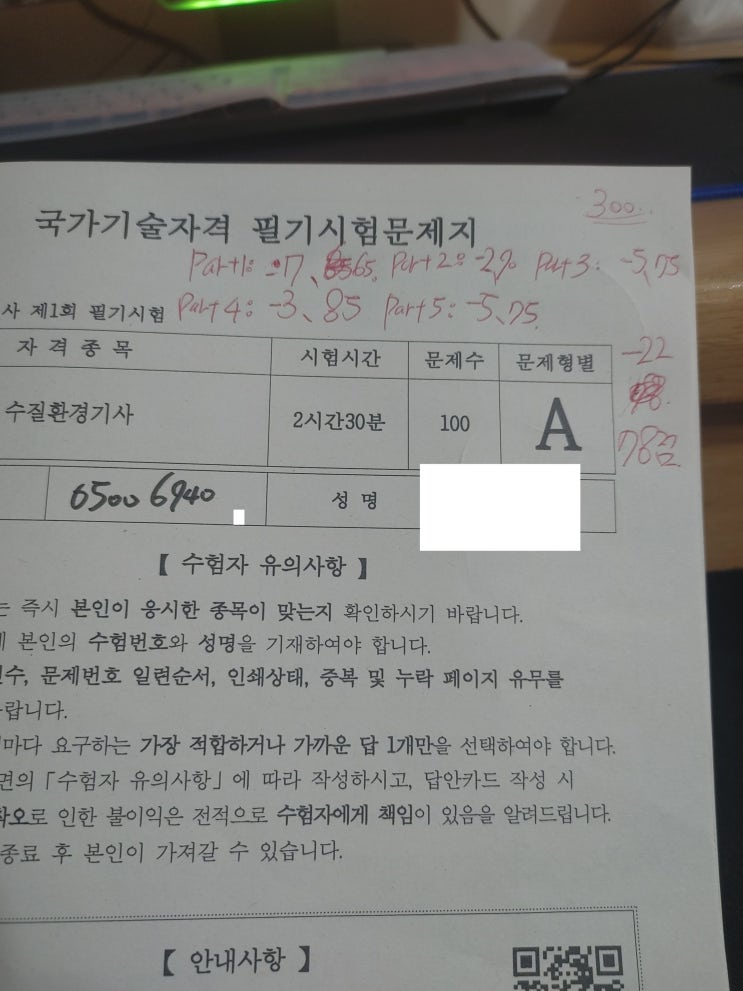 300..
국가기술자격 필기시험문제지
Part1: -7, 65. Part2: -2, 90 Part3: -5, 75
사 제1회 필기시험 Part4: -3, 85 Part5: -5, 75.
자격종목 시험시간 문제수 문제형별 -22
수질환경기사 2시간30분 100 A
78점
6500 6940 성명
【 수험자 유의사항 】
는 즉시 본인이 응시한 종목이 맞는지 확인하시기 바랍니다.
본인의 수험번호와 성명을 기재하여야 합니다.
수, 문제번호 일련순서, 인쇄상태, 중복 및 누락 페이지 유무를
랍니다.
마다 요구하는 가장 적합하거나 가까운 답 1개만을 선택하여야 합니다.
면의 「수험자 유의사항」에 따라 작성하시고, 답안카드 작성 시
착오로 인한 불이익은 전적으로 수험자에게 책임이 있음을 알려드립니다.
종료 후 본인이 가져갈 수 있습니다.
【 안내사항 】